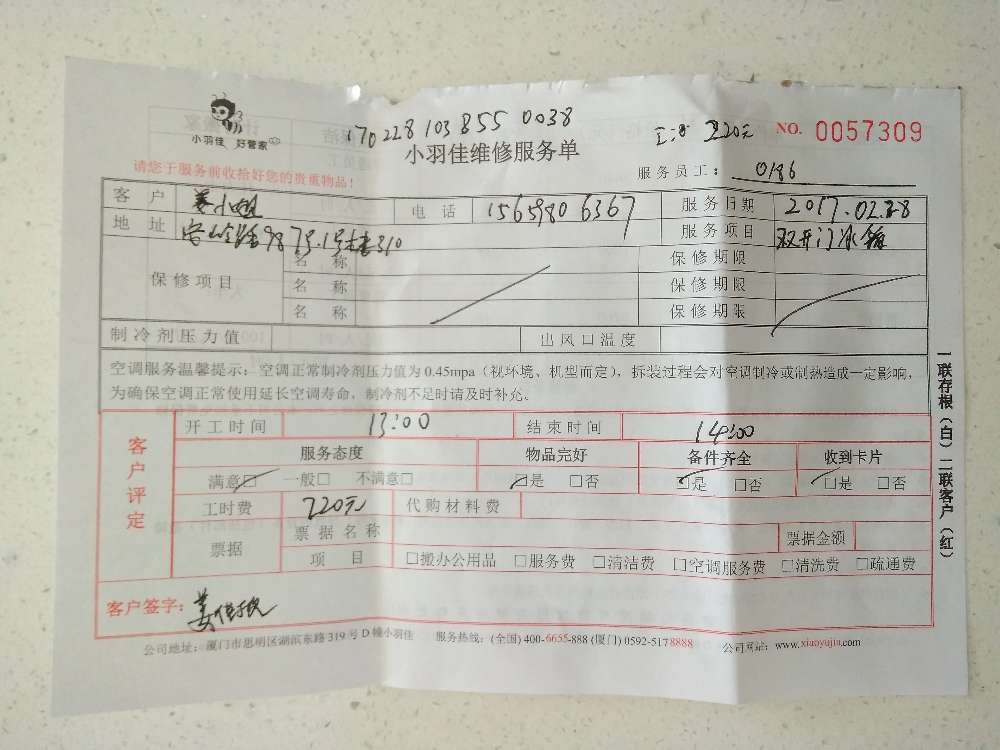 小羽佳 好管家
170228103855 0038
220元 NO. 0057309
小羽佳维修服务单
请您于服务前收拾好您的贵重物品！
服务员工： 0186
客户 姜小姐 电话 15659806367 服务日期 2017.02.28
地址 98 310 服务项目 双开门冰箱
保修项目 名称 保修期限
名称 保修期限
名称 保修期限
制冷剂压力值 出风口温度
空调服务温馨提示：空调正常制冷剂压力值为0.45mpa（视环境、机型而定），拆装过程会对空调制冷或制热造成一定影响，
为确保空调正常使用延长空调寿命，制冷剂不足时请及时补充。
客户评定
开工时间 13:00 结束时间 14:00
服务态度 物品完好 备件齐全 收到卡片
满意□ 一般□ 不满意□ □是 □否 □是 □否 □是 □否
工时费 220元 代购材料费
票据 票据名称 票据金额
项目 □搬办公用品 □服务费 □清洁费 □空调服务费 □清洗费 □疏通费
客户签字： 姜
公司地址：厦门市思明区湖滨东路319号D幢小羽佳 服务热线：(全国) 400-6655-888 (厦门) 0592-5178888 公司网址：www.xiaoyujia.com
一联存根（白）二联客户（红）